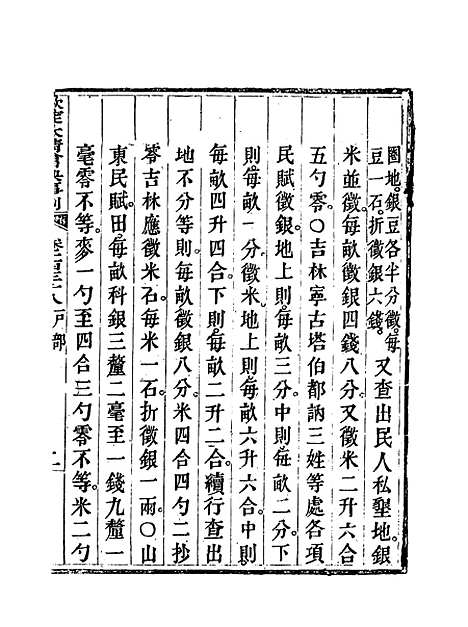 圈地。銀豆各半分徵。每
豆一石。折徵銀六錢。又查出民人私墾地。銀
米並徵。每畝徵銀四錢八分。又徵米二升六合
五勺零。○吉林寧古塔伯都訥三姓等處各項
民賦徵銀。地上則每畝三分。中則每畝二分。下
則每畝一分。徵米。地上則每畝六升六合。中則
每畝四升四合。下則每畝二升二合。續行查出
地不分等則。每畝徵銀八分。米四合四勺二抄
零。吉林應徵米石。每米一石。折徵銀一兩。○山
東民賦田。每畝科銀三釐二毫至一錢九釐一
毫零不等。麥一勺至四合三勺零不等。米二勺
欽定大清會典事例 卷一百三十八 戶部